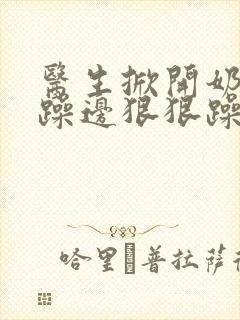 醫生掀開奶
躁邊狠狠躁
哈里·普拉薩